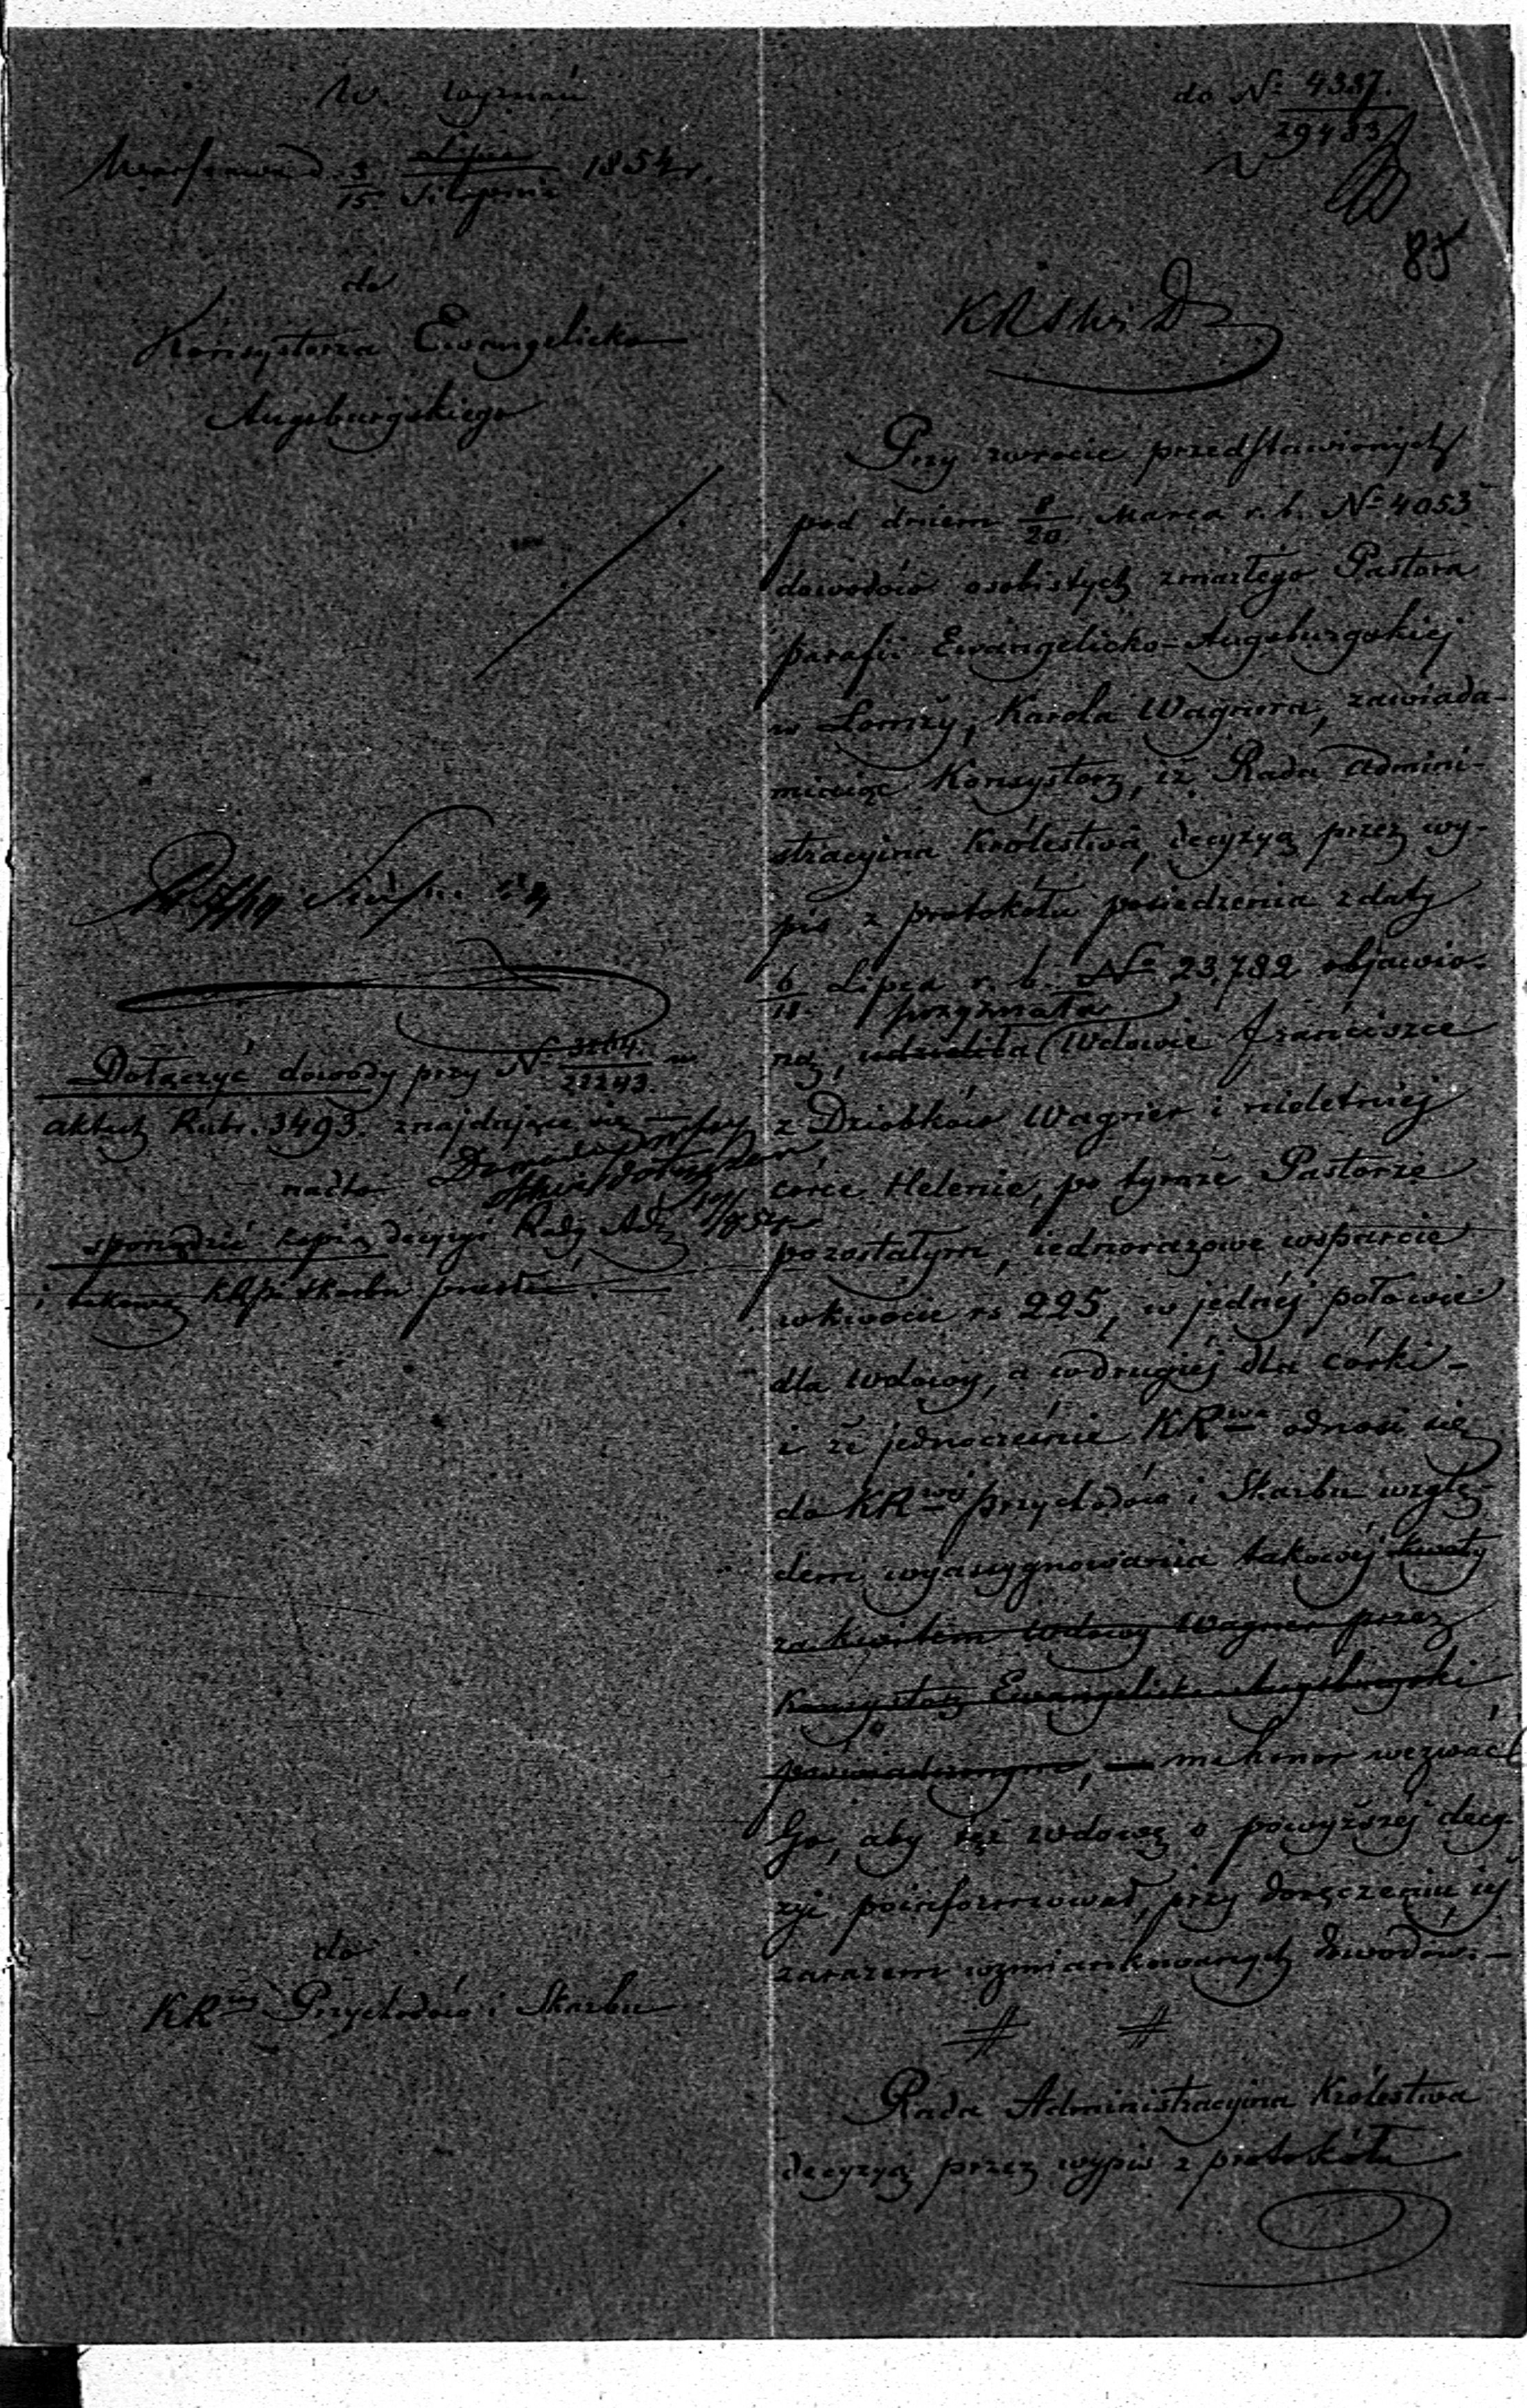 W. Wyznań
Warszawa d. 3/15 Lipca Sierpnia 1854 r.
do
Konsystorza Ewangelicko
Augsburgskiego
Dołączyć dowody przy N° 3264/22243 w
aktach Rubr. 3493. znajdujące się —
nadto
sporządzić kopią decyzyi Rady Adm
i takową
do
KR Przychodów i Skarbu
do N° 4337.
29483
85
KRSW i D
Przy zwrocie przedstawionych
pod dniem 8/20 Marca r. b. N° 4053
dowodów osobistych zmarłego Pastora
parafii Ewangelicko-Augsburgskiej
w Łomży, Karola Wagnera, zawiada-
miając Konsystorz, iż Rada Admini-
stracyjna Królestwa, decyzyą przez wy-
pis z protokółu posiedzenia z daty
6/18 Lipca r. b. N° 23,782 objawio-
przyznała
ną, udzieliła Wdowie Franciszce
z Dziobków Wagner i nieletniej
córce Helenie, po tymże Pastorze
pozostałym, jednorazowe wsparcie
w kwocie rs 225, w jednej połowie
dla wdowy, a w drugiej dla córki —
i że jednocześnie KRwa odnosi się
do KRwej przychodów i Skarbu wzglę-
dem wyasygnowania takowej kwoty
za kwitem Wdowy Wagner przez
Konsystorz Ewangelicko Augsburgski
poświadczonym, — ma honor wezwać
Go, aby też wdowę o powyższej decy-
zyi poinformował, przy doręczeniu jej
zarazem wzmiankowanych dowodów. —
# #
Rada Administracyjna Królestwa
decyzyą przez wypis z protokółu